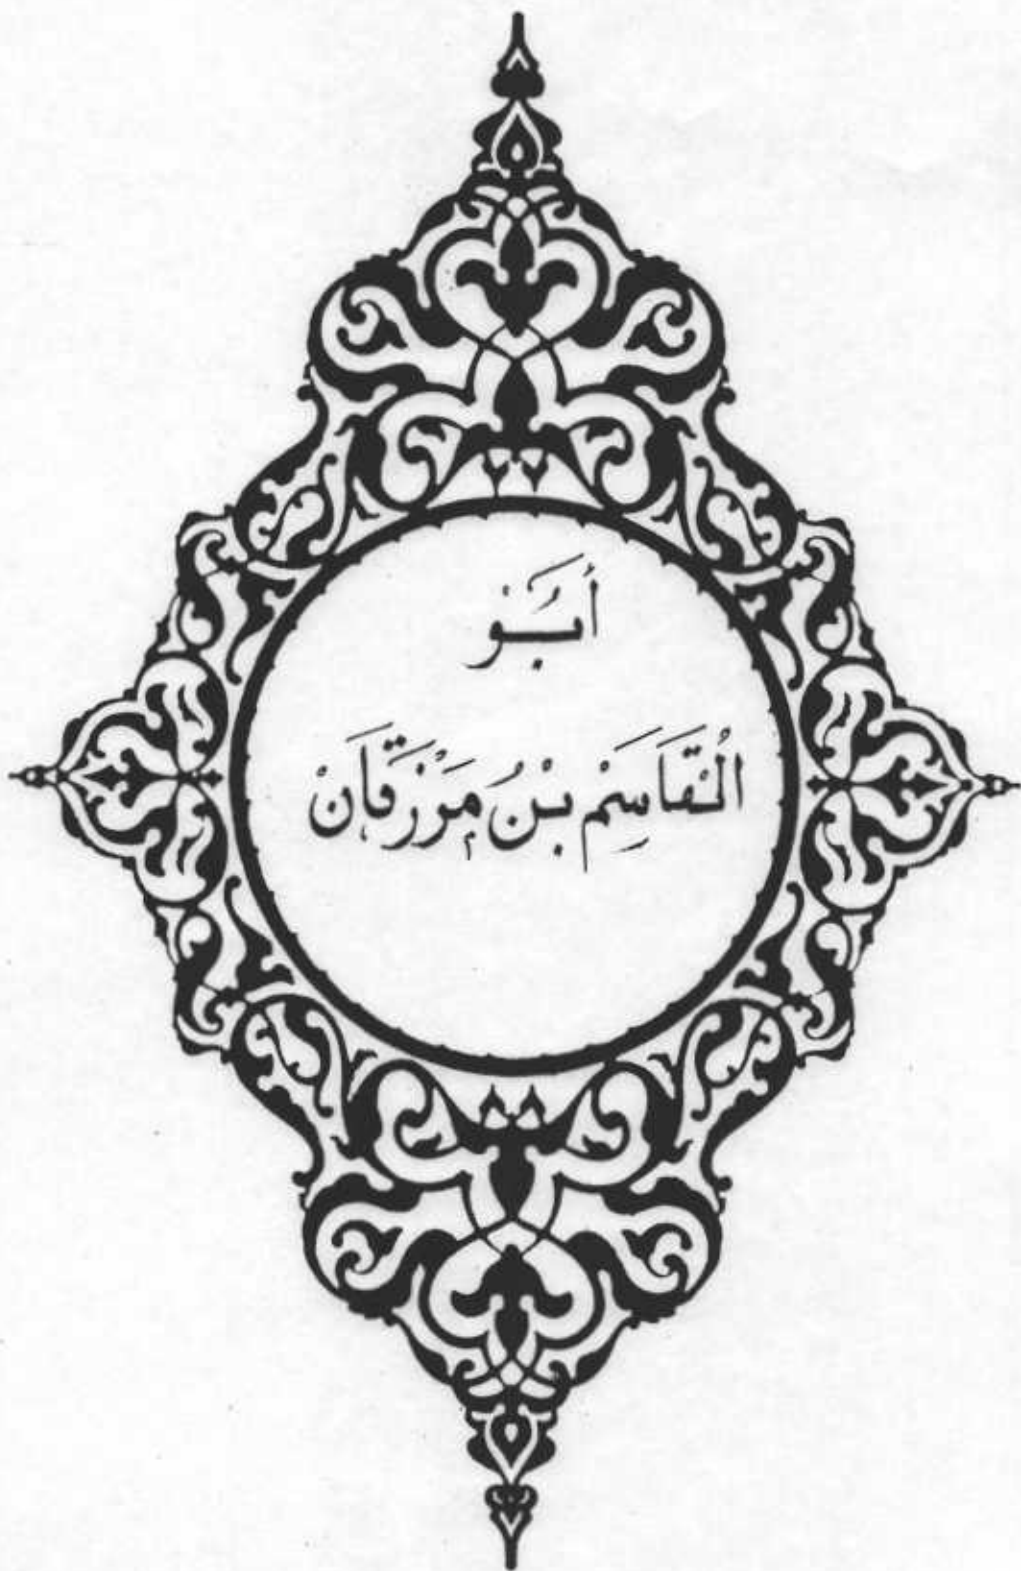 أَبُو
الْقَاسِمْ بْنُ مَرْزَقَانْ